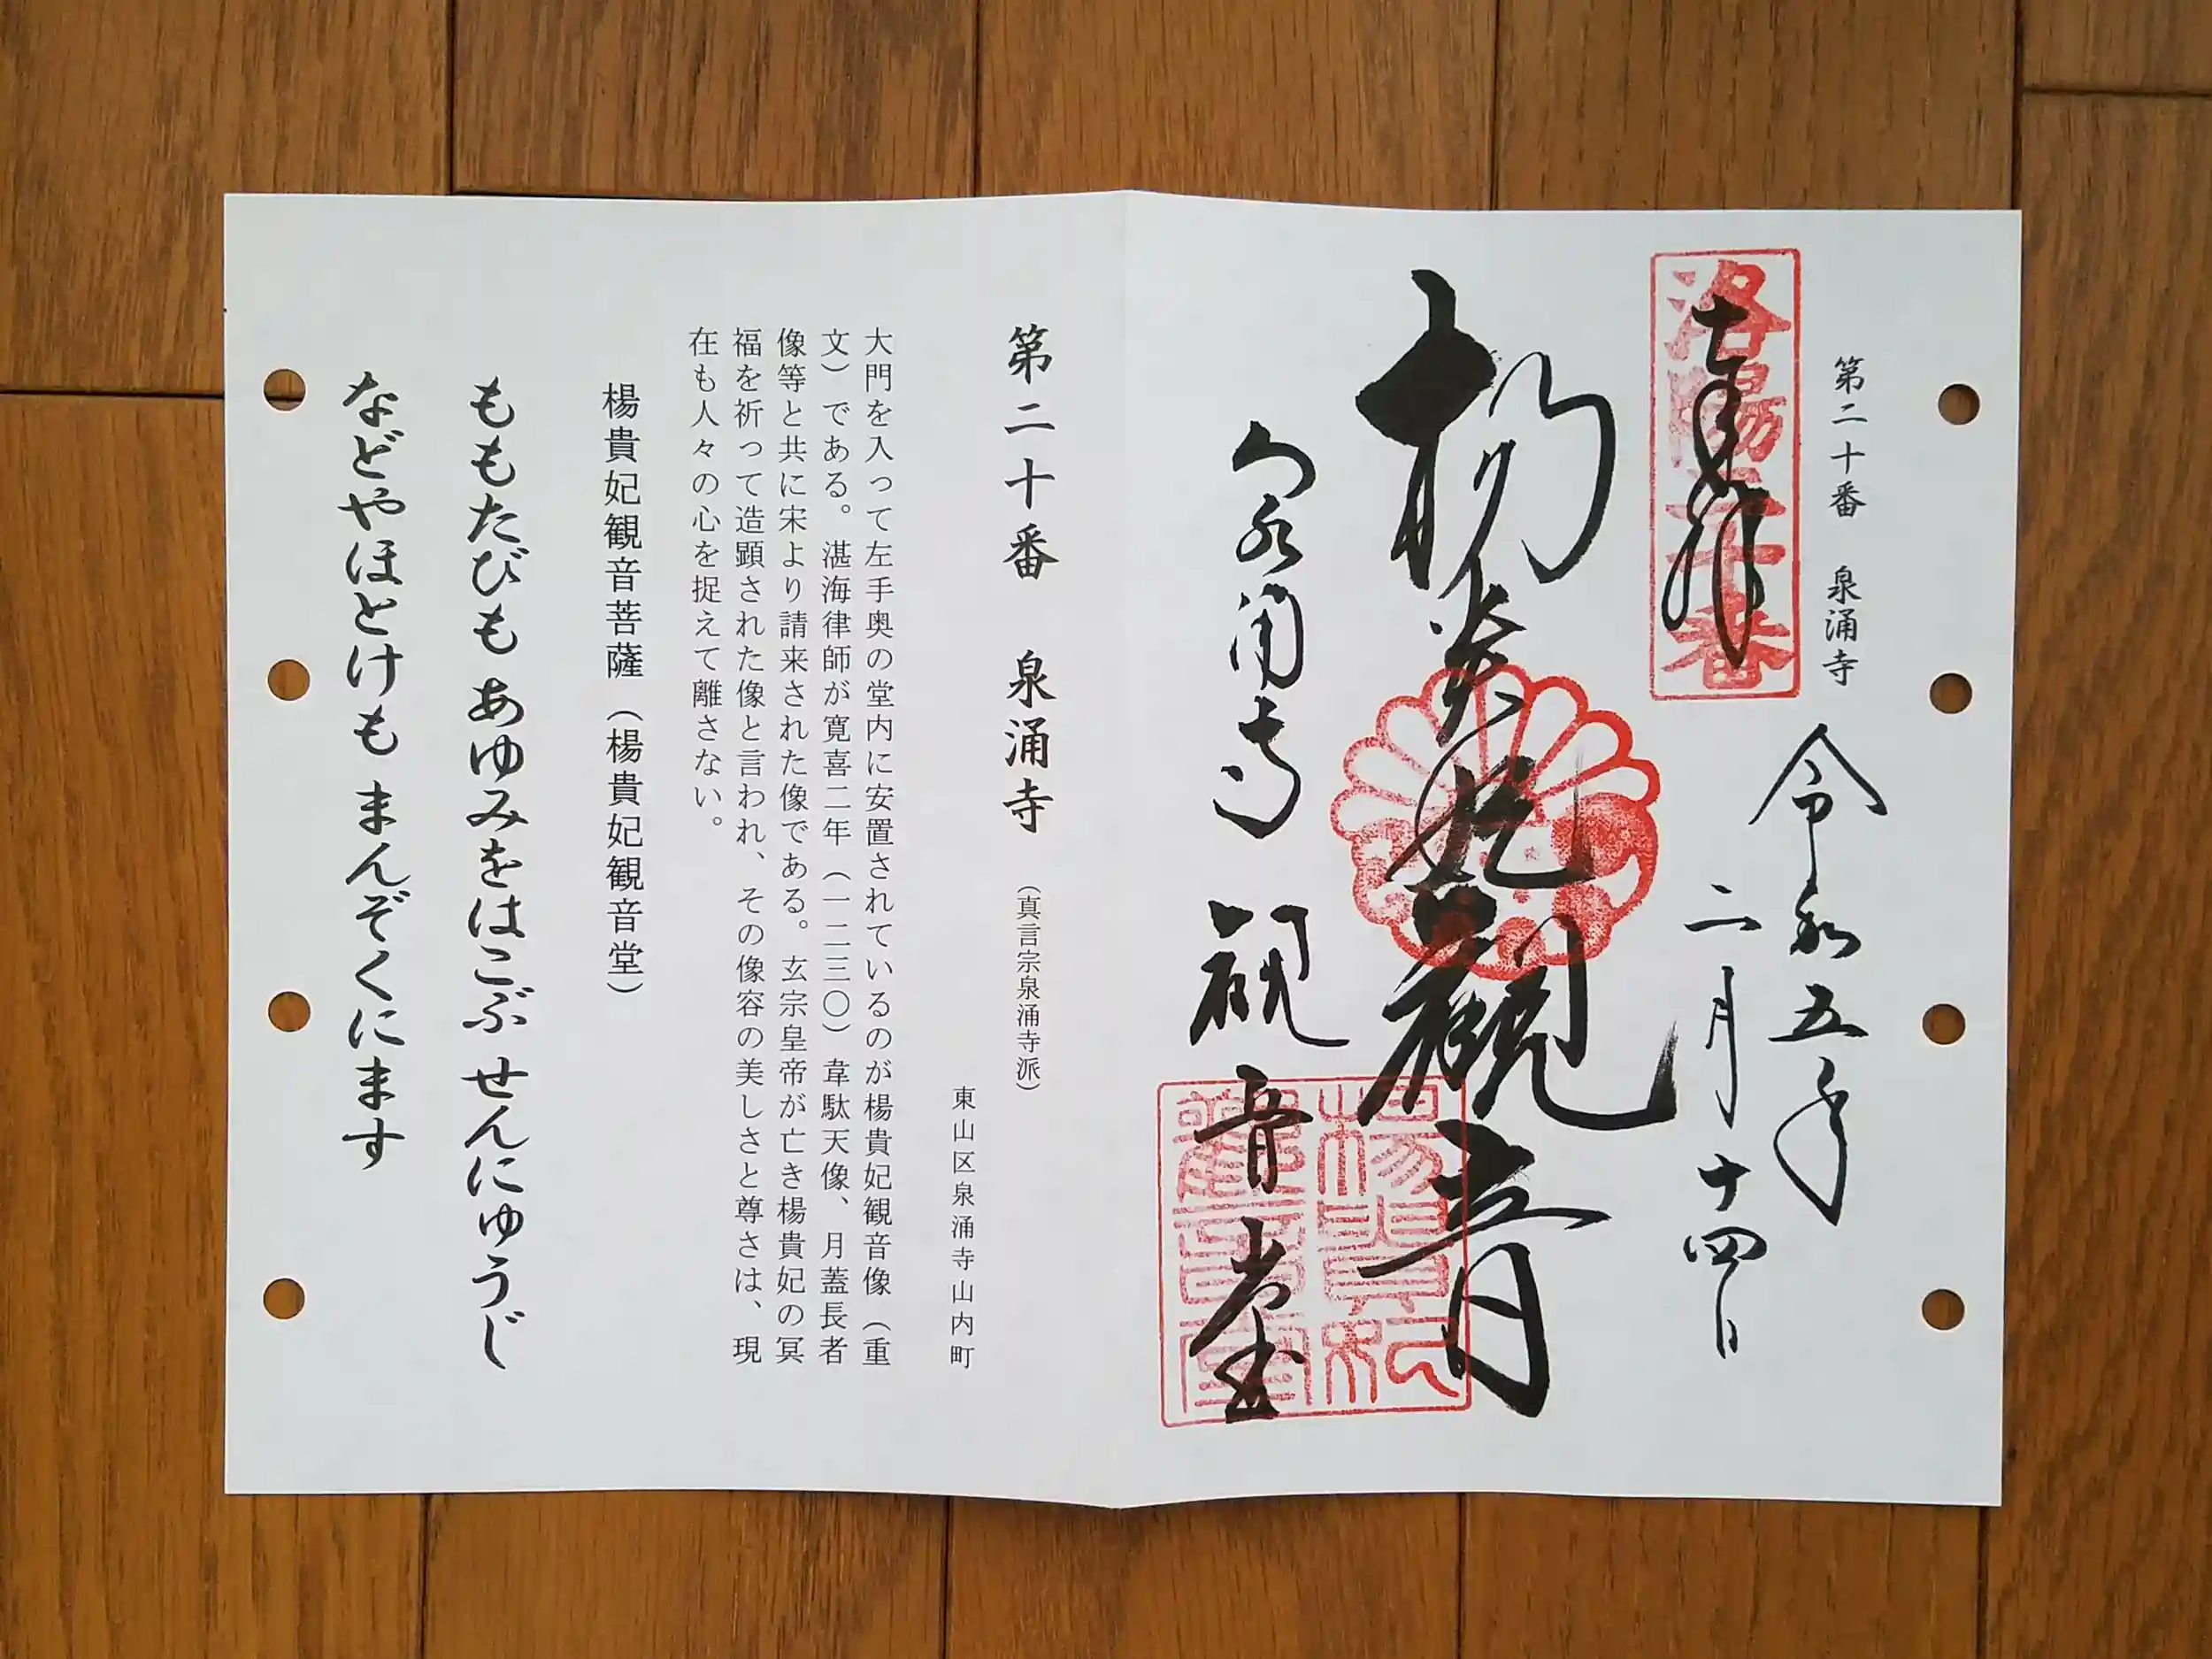 第二十番 泉涌寺
令和五年
二月十四日
洛陽二十番
奉拝
楊貴妃観音
泉涌寺 観音堂
楊貴妃
観音堂
第二十番 泉涌寺 （真言宗泉涌寺派）
東山区泉涌寺山内町
大門を入って左手奥の堂内に安置されているのが楊貴妃観音像（重
文）である。湛海律師が寛喜二年（一二三〇）韋駄天像、月蓋長者
像等と共に宋より請来された像である。玄宗皇帝が亡き楊貴妃の冥
福を祈って造顕された像と言われ、その像容の美しさと尊さは、現
在も人々の心を捉えて離さない。
楊貴妃観音菩薩（楊貴妃観音堂）
ももたびも あゆみをはこぶ せんにゅうじ
などやほとけも まんぞくにます